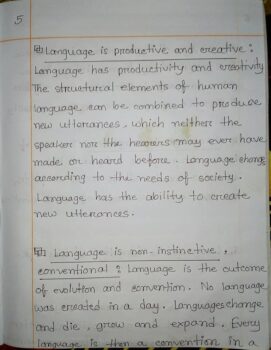 5
Language is productive and creative:
Language has productivity and creativity
The structural elements of human
language can be combined to produce
new utterances, which neither the
speaker nor the hearers may ever have
made or heard before. Language change
according to the needs of society.
Language has the ability to create
new utterances.
Language is non-instinctive,
conventional: Language is the outcome
of evolution and convention. No language
was created in a day. Languages change
and die, grow and expand. Every
language is then a convention in a